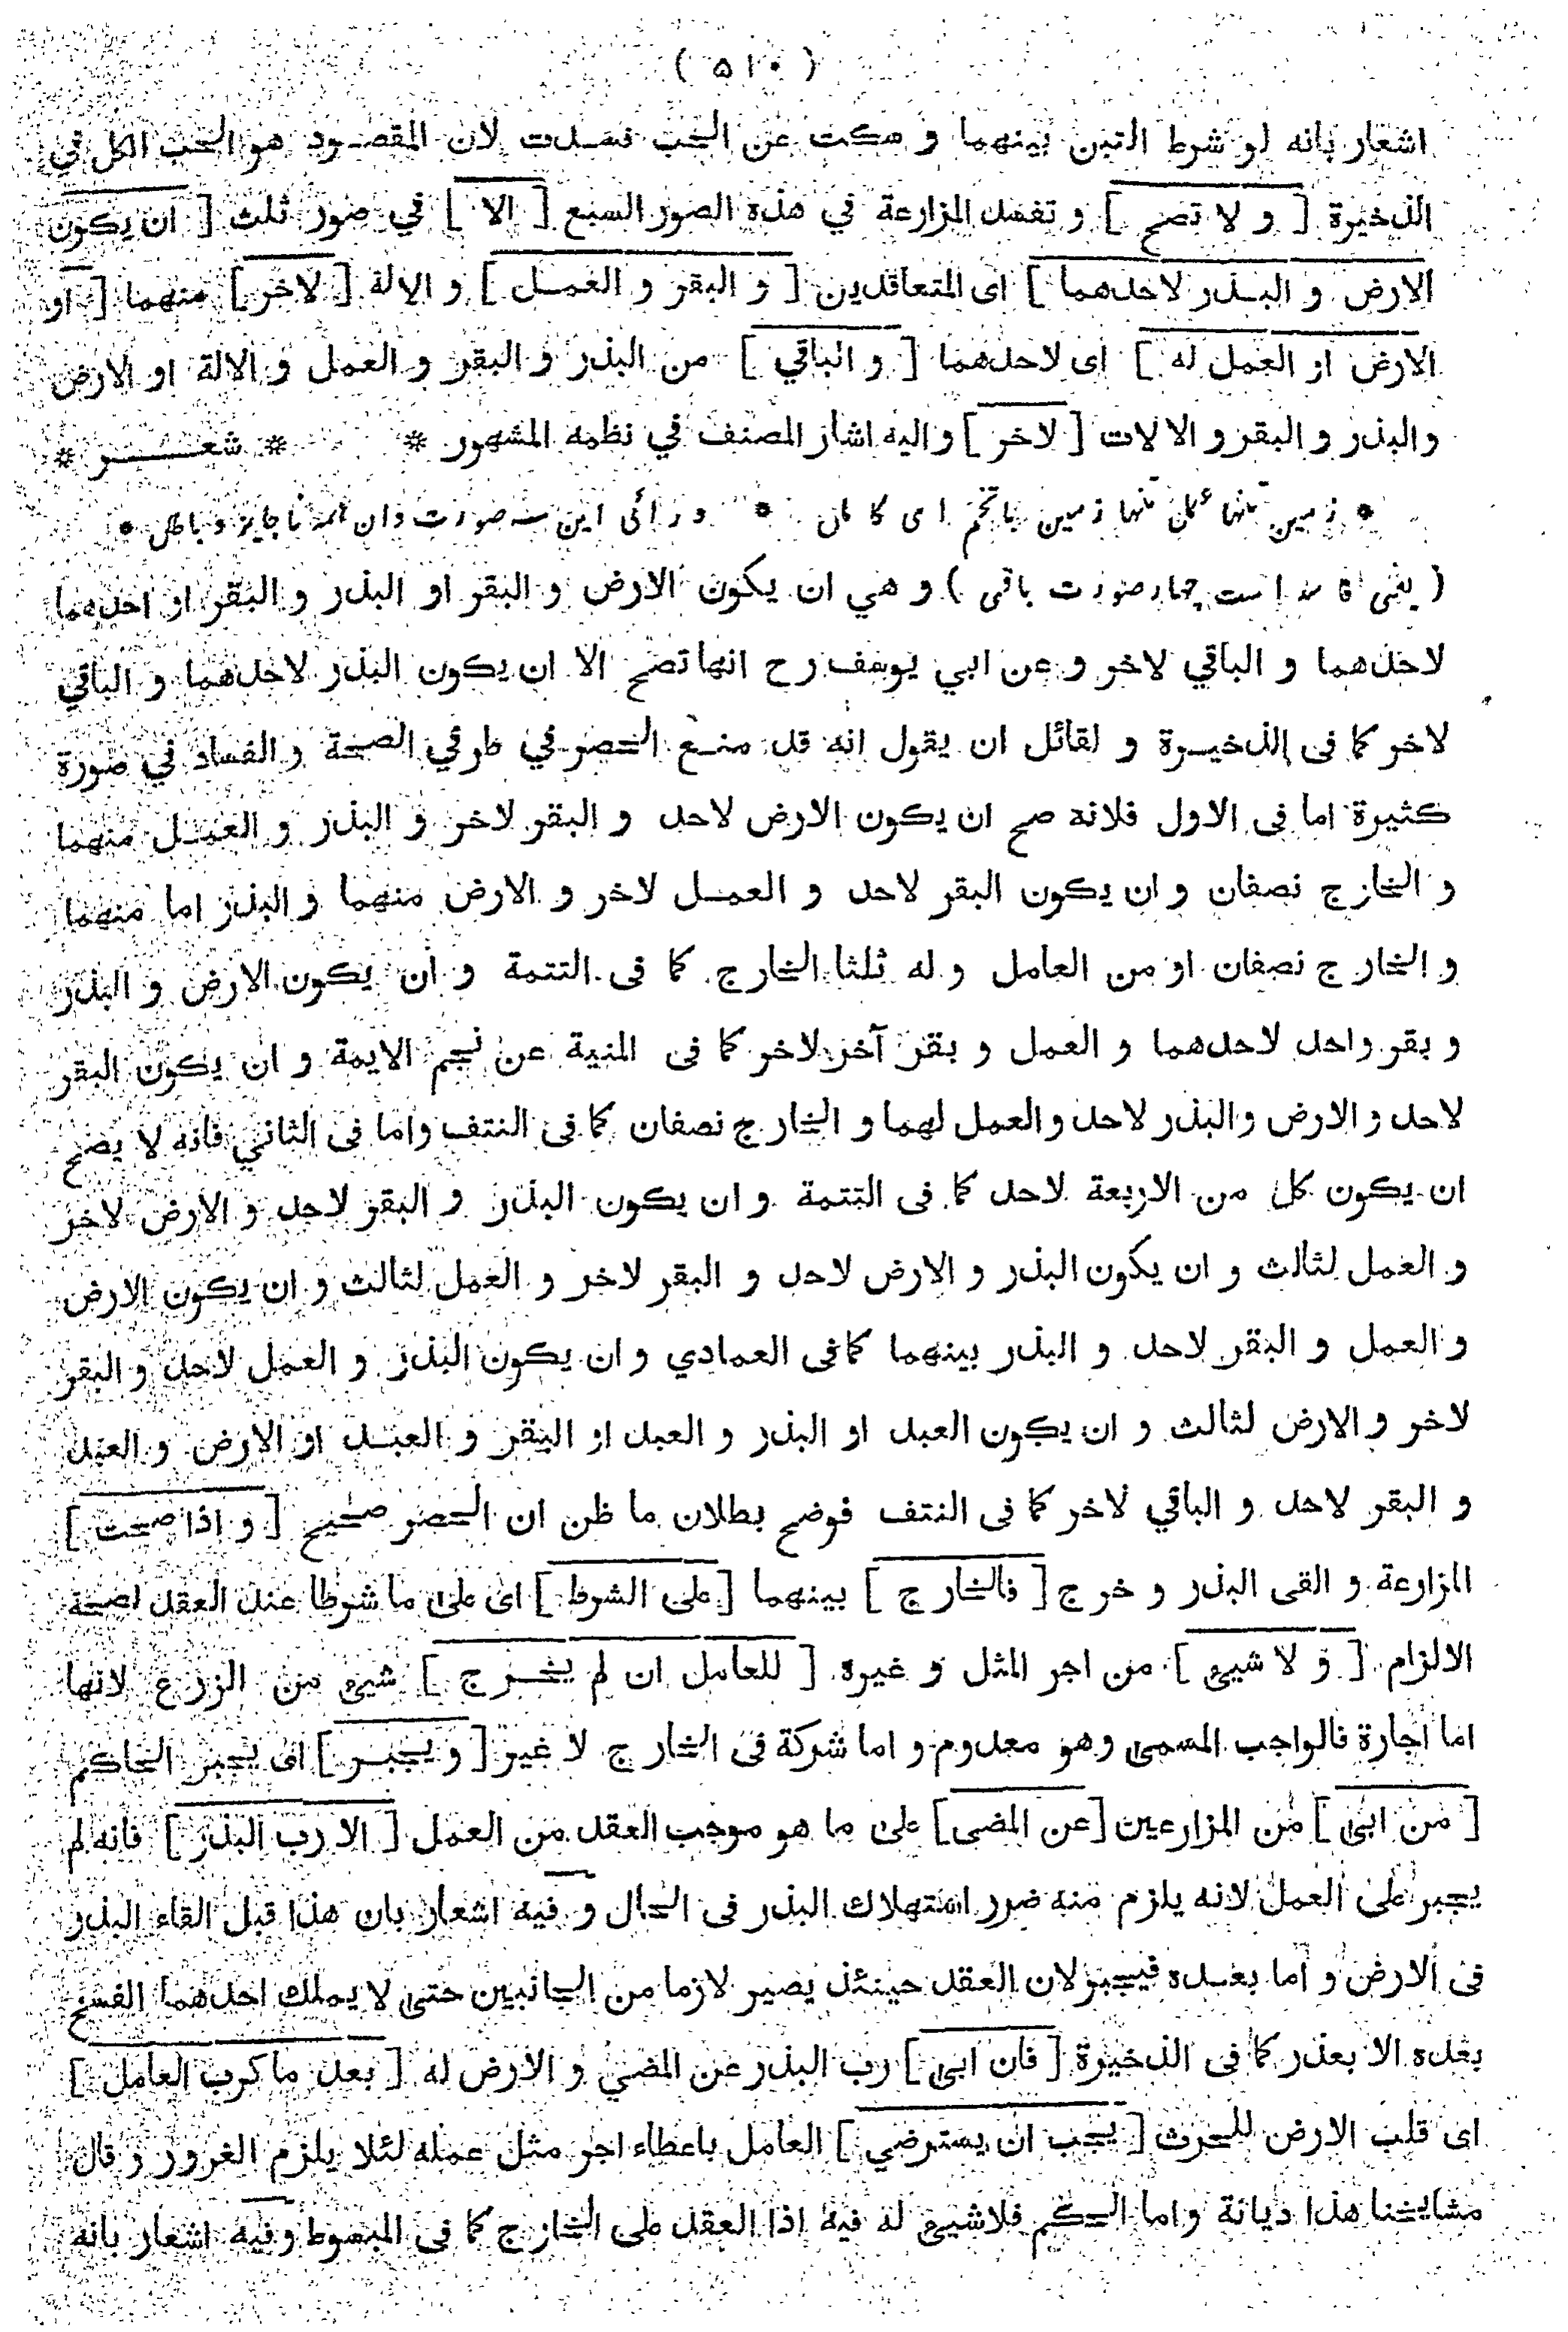 ( ۵۱۰ )
اشعار بانه لو شرط التبن بينهما و سكت عن الحب فسدت لان المقصود هو الحب الكل في
الذخيرة [ و لا تصح ] و تفسد المزارعة في هذه الصور السبع [ الا ] في صور ثلث [ ان يكون
الارض و البذر لاحدهما ] اى المتعاقدين [ و البقر و العمل ] و الالة [ لاخر ] منهما [ او
الارض او العمل له ] اى لاحدهما [ و الباقي ] من البذر و البقر و العمل و الالة او الارض
والبذر و البقر و الالات [ لاخر ] واليه اشار المصنف في نظمه المشهور * * شعر *
* زمين تنها عمل تنها زمين با تخم اى كامل * ورائى اين سه صورت دان همه ناجايز و باطل *
( يعنى فاسد است چهار صورت باقى ) و هي ان يكون الارض و البقر او البذر و البقر او احدهما
لاحدهما و الباقي لاخر و عن ابي يوسف رح انها تصح الا ان يكون البذر لاحدهما و الباقي
لاخر كما فى الذخيرة و لقائل ان يقول انه قد منع الحصر في طرفي الصحة و الفساد في صورة
كثيرة اما فى الاول فلانه صح ان يكون الارض لاحد و البقر لاخر و البذر و العمل منهما
و الخارج نصفان و ان يكون البقر لاحد و العمل لاخر و الارض منهما و البذر اما منهما
و الخارج نصفان او من العامل و له ثلثا الخارج كما فى التتمة و ان يكون الارض و البذر
و بقر واحد لاحدهما و العمل و بقر آخر لاخر كما فى المنية عن نجم الايمة و ان يكون البقر
لاحد و الارض والبذر لاحد والعمل لهما و الخارج نصفان كما فى النتف واما فى الثاني فانه لا يصح
ان يكون كل من الاربعة لاحد كما فى التتمة و ان يكون البذر و البقر لاحد و الارض لاخر
و العمل لثالث و ان يكون البذر و الارض لاحد و البقر لاخر و العمل لثالث و ان يكون الارض
و العمل و البقر لاحد و البذر بينهما كما فى العمادي و ان يكون البذر و العمل لاحد و البقر
لاخر و الارض لثالث و ان يكون العبد او البذر و العبد او البقر و العبد او الارض و العبد
و البقر لاحد و الباقي لاخر كما فى النتف فوضح بطلان ما ظن ان الحصر صحيح [ و اذا صحت ]
المزارعة و القى البذر و خرج [ فالخارج ] بينهما [ على الشرط ] اى على ما شرطا عند العقد لصحة
الالزام [ و لا شيئ ] من اجر المثل و غيره [ للعامل ان لم يخرج ] شيئ من الزرع لانها
اما اجارة فالواجب المسمى وهو معدوم و اما شركة فى الخارج لا غير [ و يجبر ] اى يجبر الحاكم
[ من ابى ] من المزارعين [ عن المضى ] على ما هو موجب العقد من العمل [ الا رب البذر ] فانه لم
يجبر على العمل لانه يلزم منه ضرر استهلاك البذر فى الحال و فيه اشعار بان هذا قبل القاء البذر
فى الارض و اما بعده فيجبر لان العقد حينئذ يصير لازما من الجانبين حتى لا يملك احدهما الفسخ
بعده الا بعذر كما فى الذخيرة [ فان ابى ] رب البذر عن المضي و الارض له [ بعد ما كرب العامل ]
اى قلب الارض للحرث [ يجب ان يسترضي ] العامل باعطاء اجر مثل عمله لئلا يلزم الغرور و قال
مشايخنا هذا ديانة و اما الحكم فلا شيئ له فيه اذا العقد على الخارج كما فى المبسوط و فيه اشعار بانه